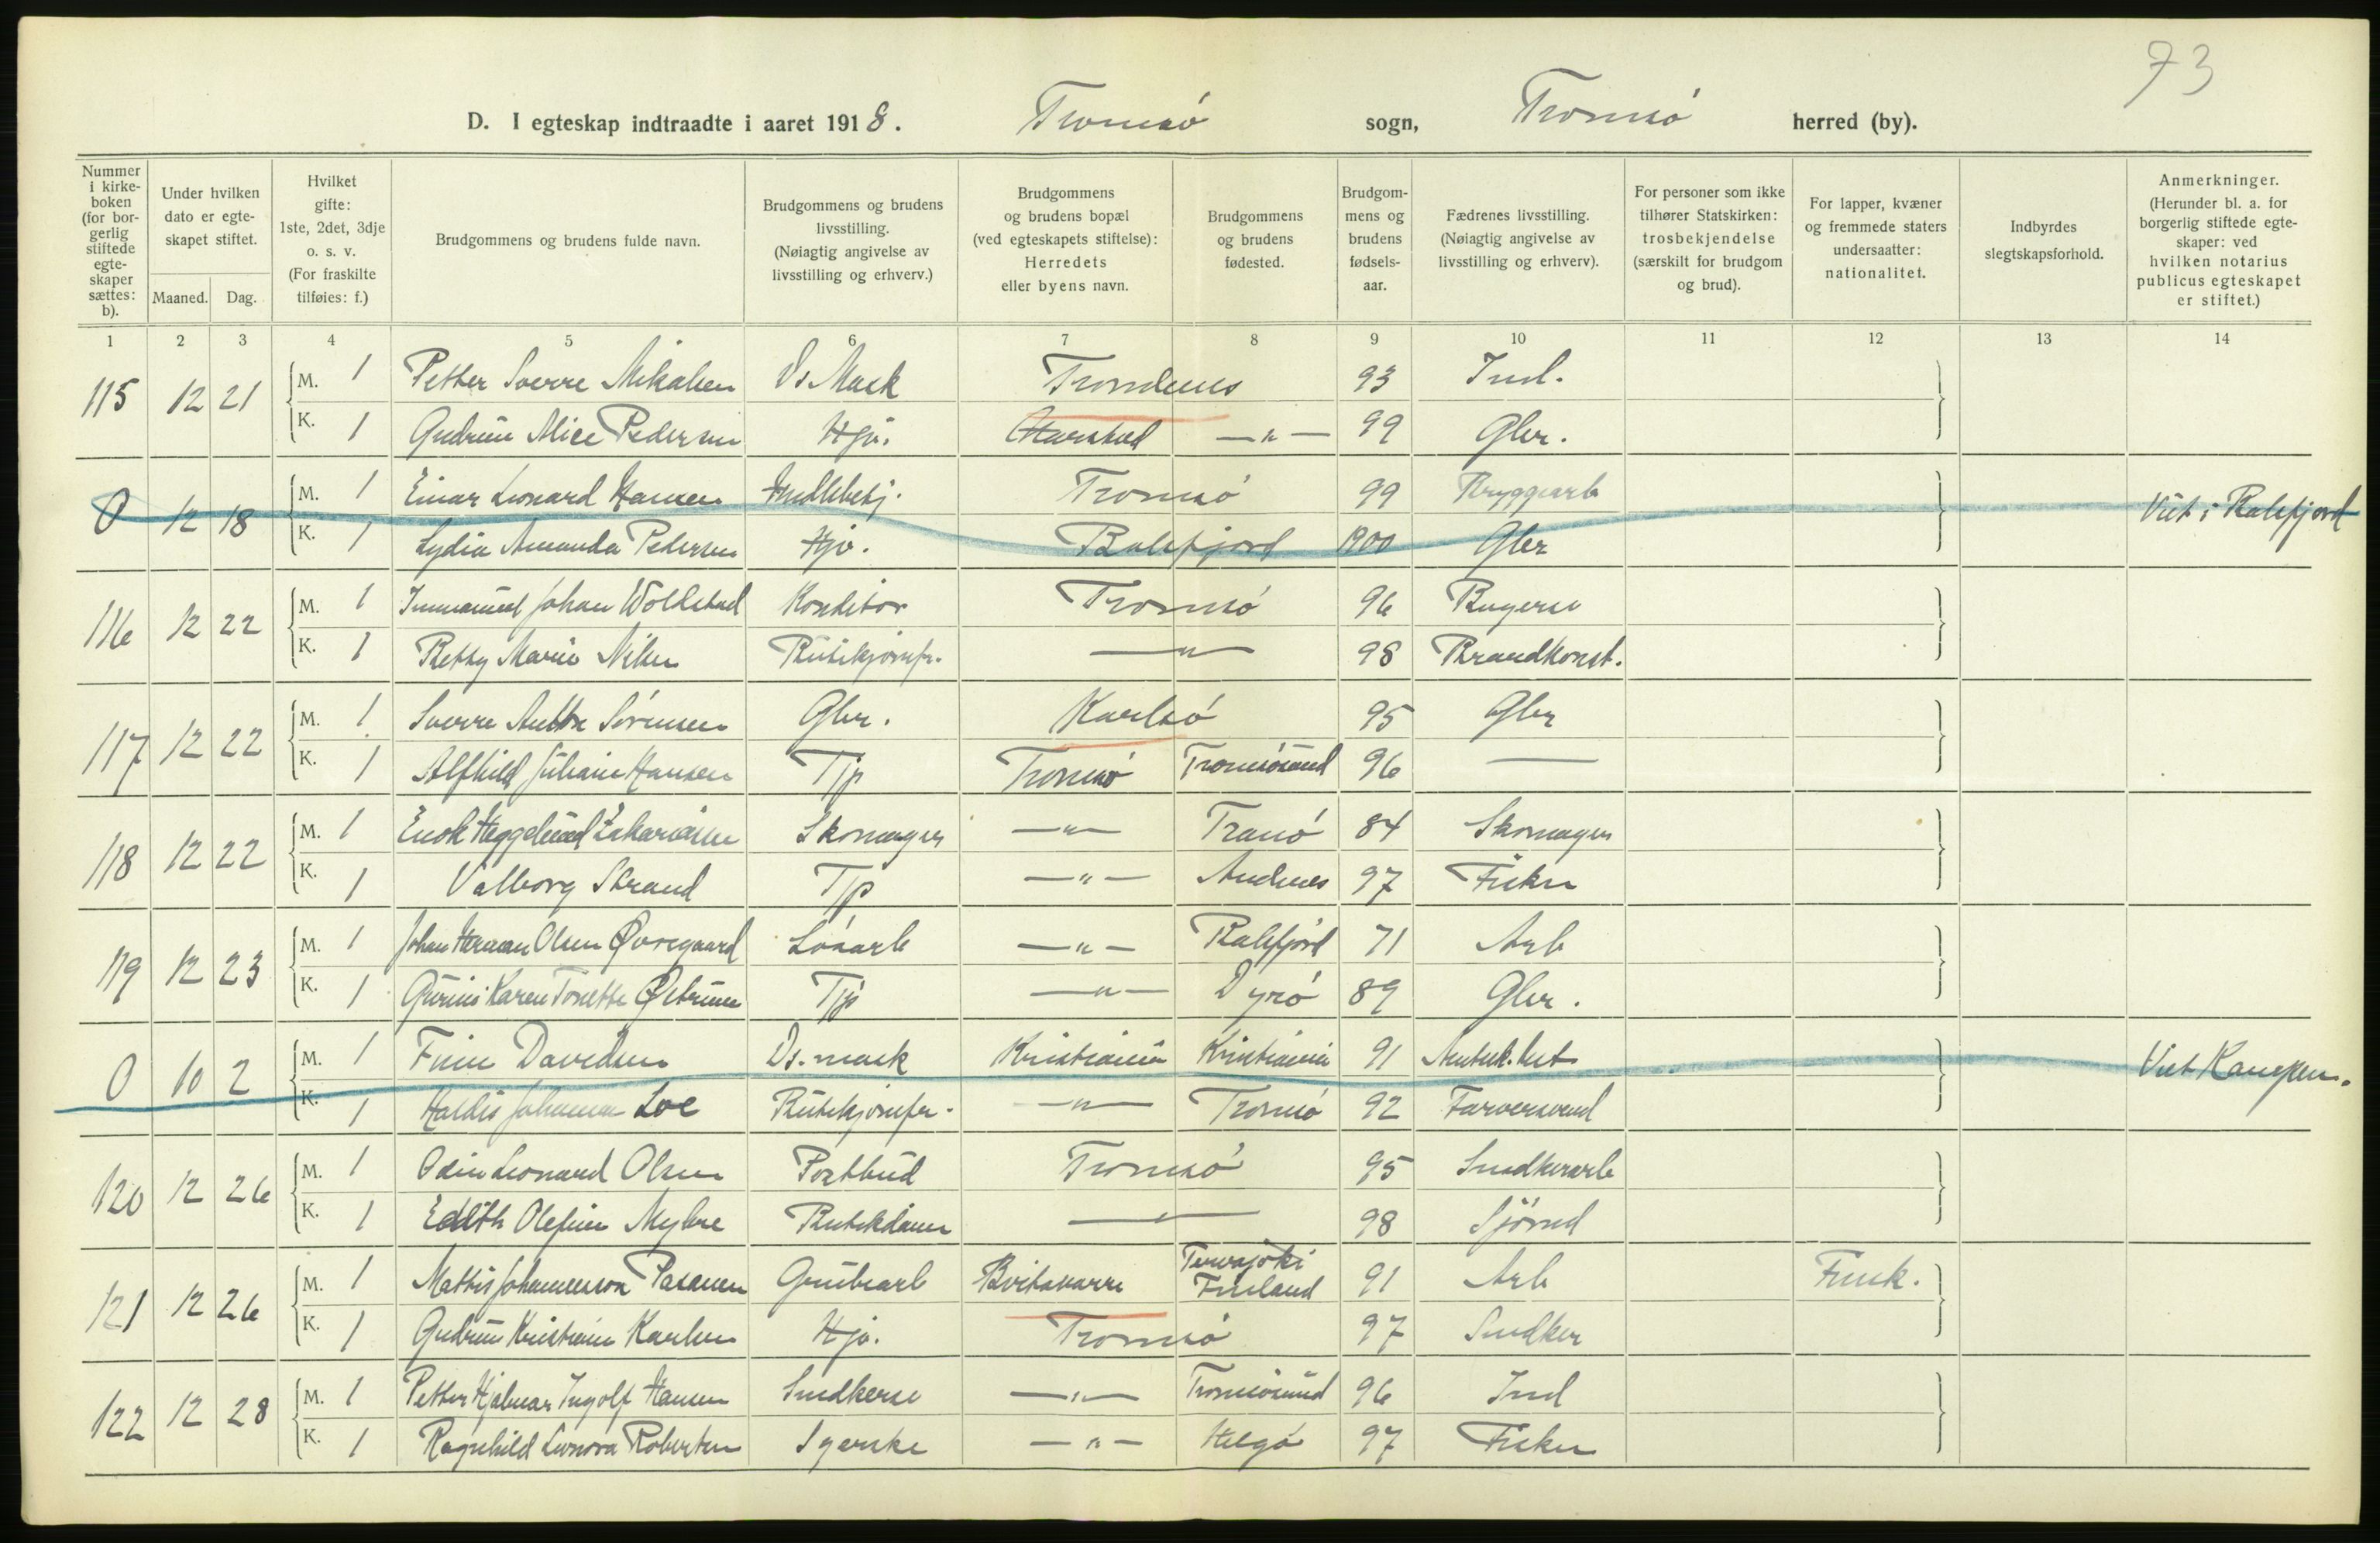 73
D. I egteskap indtraadte i aaret 1918. Tromsø sogn, Tromsø herred (by).
Nummer i kirke-boken (for bor-gerlig stiftede egte-skaper sættes: b).
Under hvilken dato er egte-skapet stiftet.
Maaned. Dag.
Hvilket gifte: 1ste, 2det, 3dje o. s. v. (For fraskilte tilføies: f.)
Brudgommens og brudens fulde navn.
Brudgommens og brudens livsstilling. (Nøiagtig angivelse av livsstilling og erhverv.)
Brudgommens og brudens bopæl (ved egteskapets stiftelse): Herredets eller byens navn.
Brudgommens og brudens fødested.
Brudgom-mens og brudens fødsels-aar.
Fædrenes livsstilling. (Nøiagtig angivelse av livsstilling og erhverv).
For personer som ikke tilhører Statskirken: trosbekjendelse (særskilt for brudgom og brud).
For lapper, kvæner og fremmede staters undersaatter: nationalitet.
Indbyrdes slegtskapsforhold.
Anmerkninger. (Herunder bl. a. for borgerlig stiftede egte-skaper: ved hvilken notarius publicus egteskapet er stiftet.)
1 2 3 4 5 6 7 8 9 10 11 12 13 14
115 12 21 M. 1 Petter Sverre Mikalsen Ds. Mask Trondenes 93 Ind.
K. 1 Gudrun Alice Pedersen Hjv. Harstad —"— 99 Gbr.
0 12 18 M. 1 Einar Leonard Hansen Tromsø 99 Bryggearb Viet i Balsfjord
K. 1 Lydia Amanda Pedersen Hjv. Balsfjord 1900 Gbr
116 12 22 M. 1 Immanuel Johan Woldstad Konditor Tromsø 96 Bugerse
K. 1 Betsy Marie Nilsen Butikjomfr. —"— 98 Brandkonst.
117 12 22 M. 1 Sverre Anton Sørensen Gbr. Karlsø 95 Gbr
K. 1 Alfhild Juliane Hansen Tjp Tromsø Tromsøsund 96 —
118 12 22 M. 1 Enok Heggelund Zakariasen Skomager —"— Tranø 84 Skomager
K. 1 Valborg Strand Tjp —"— Andenes 97 Fisker
119 12 23 M. 1 Johan Herman Olsen Øvregaard Løsarb —"— Balsfjord 71 Arb
K. 1 Gurine Karen Tonette Østrum Tjp —"— Dyrø 89 Gbr.
0 10 2 M. 1 Finn Davidsen Ds. mask Kristiania Kristiania 91 Viet Kampen.
K. 1 Haldis Johanna Loe Butikjomfr. —"— Tromsø 92 Farversvend
120 12 26 M. 1 Odin Leonard Olsen Postbud Tromsø 95 Snedkerarb
K. 1 Edith Olefine Myhre Butikdame —"— 98 Sjømd
121 12 26 M. 1 Mattis Johannesson Pasanen Grubearb Bvitavarre Tervajoki Finland 91 Arb Finsk.
K. 1 Gudrun Kristiane Karlsen Hjv. Tromsø 97 Snedker
122 12 28 M. 1 Petter Hjalmar Ingolf Hansen Snedkerse —"— Tromsøsund 96 Ind
K. 1 Ragnhild Leonora Robertsen Syerske —"— Helgø 97 Fisker